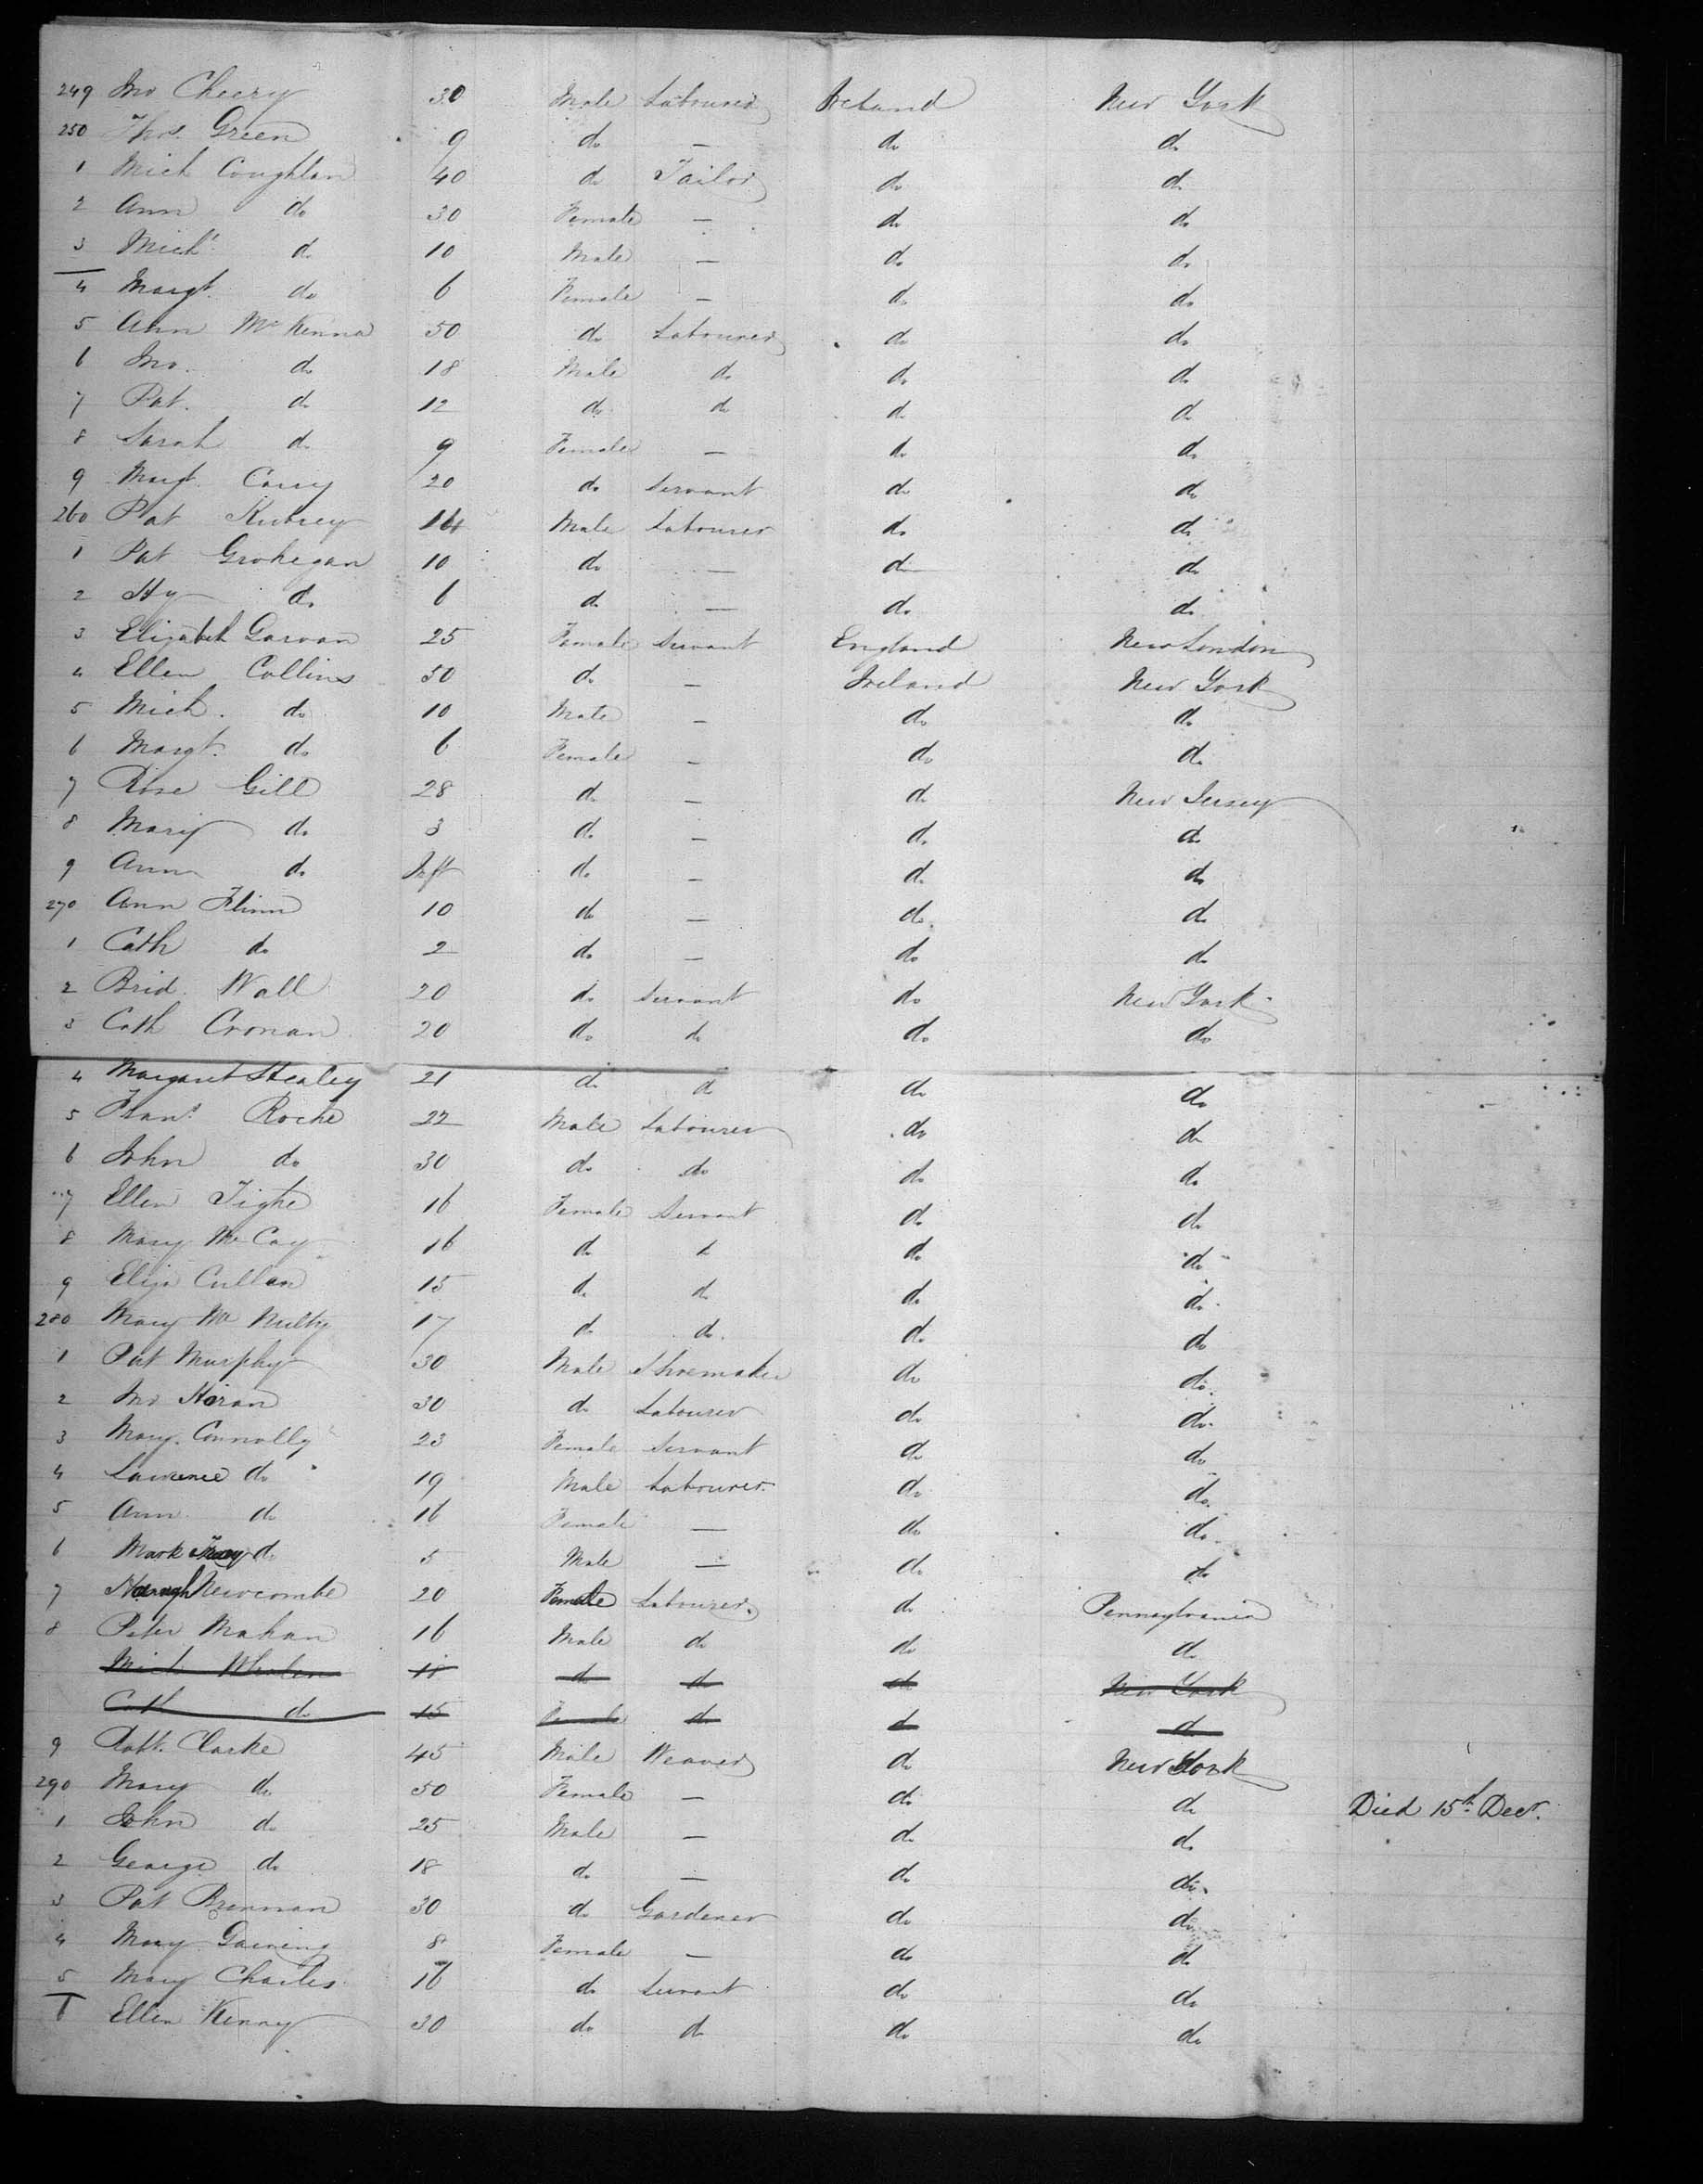 249 Jno Cheery 30 Male Labourer Ireland New York
250 Thos. Green 9 do — do do
1 Mich Coughlan 40 do Tailor do do
2 Ann do 30 Female — do do
3 Michl do 10 Male — do do
4 Margt. do 6 Female — do do
5 Ann McKenna 50 do Labourer do do
6 Jno. do 18 Male do do do
7 Pat. do 12 do do do do
8 Sarah do 9 Female — do do
9 Margt. 20 do Servant do do
260 Pat Male Labourer do do
1 Pat Grohegan 10 do — do do
2 Hy do 6 do — do do
3 Elizabeth Garvan 25 Female Servant England New London
4 Ellen Collins 50 do — Ireland New York
5 Mich. do 10 Male — do do
6 Margt. do 6 Female — do do
7 Rose Gill 28 do — do New Jersey
8 Mary do 3 do — do do
9 Ann do Inft do — do do
270 Ann Flinn 10 do — do do
1 Cath do 2 do — do do
2 Brid. Wall 20 do Servant do New York
3 Cath Cronan 20 do do do do
4 Margaret Healey 21 do do do do
5 Frans Roche 22 Male Labourer do do
6 John do 30 do do do do
7 Ellen Tighe 16 Female Servant do do
8 Mary McCay 16 do do do do
9 Eliza Cullen 15 do do do do
280 Mary McNulty 17 do do do do
1 Pat Murphy 30 Male Shoemaker do do
2 Jno Horan 30 do Labourer do do
3 Mary Connolly 23 Female Servant do do
4 Lawrence do 19 Male Labourer do do
5 Ann do 16 Female — do do
6 Mark do 5 Male — do do
7 Newcombe 20 Female Labourer do Pennsylvania
8 Peter Mahan 16 Male do do do
Mich Whelan 18 do do do New York
Cath do 15 Female do do do
9 Robt. Clarke 45 Male Weaver do New York
290 Mary do 50 Female — do do Died 15th Decr.
1 John do 25 Male — do do
2 George do 18 do — do do
3 Pat Brennan 30 do Gardener do do
4 Mary 8 Female — do do
5 Mary Charles 16 do Servant do do
6 Ellen Kenny 30 do do do do